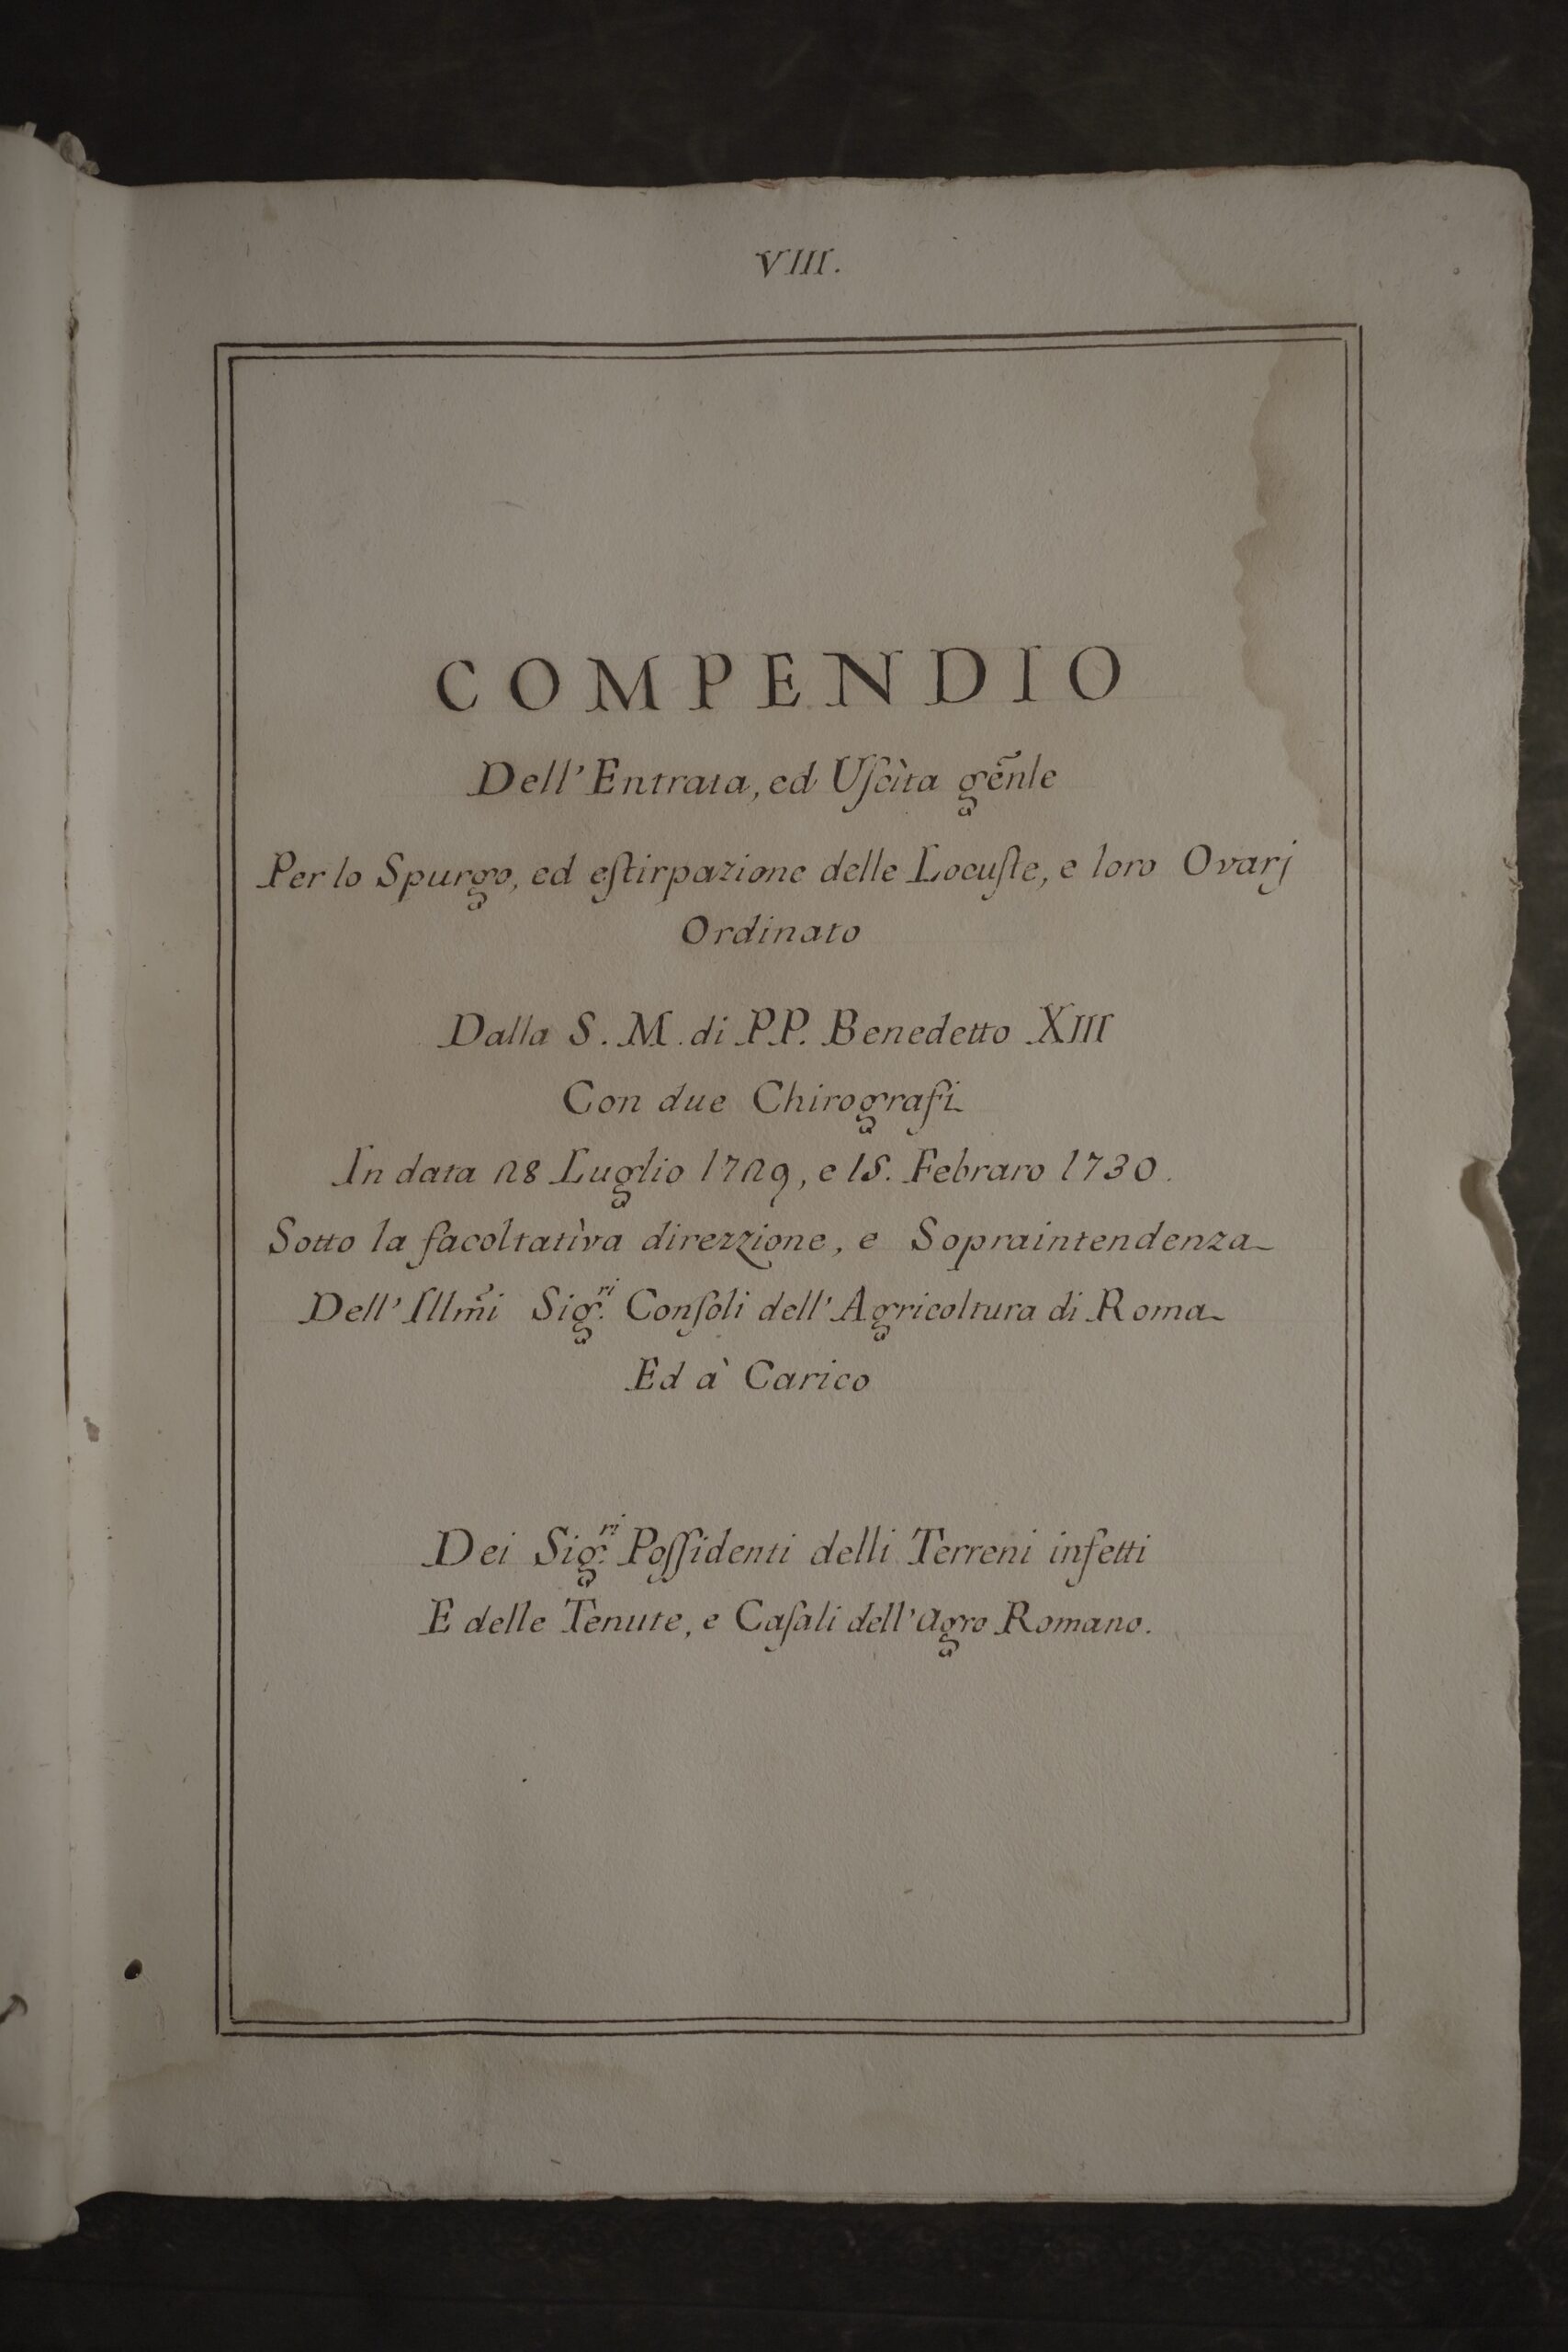 VIII.
COMPENDIO
Dell' Entrata, ed Uſcìta gẽnle
Per lo Spurgo, ed eſtirpazione delle Locuſte, e loro Ovarj
Ordinato
Dalla S. M. di P.P. Benedetto XIII
Con due Chirografi
In data 28 Luglio 1729, e 15. Febraro 1730.
Sotto la facoltatìva direzzione, e Sopraintendenza
Dell' Illm̃i Sig.ri Conſoli dell' Agricoltura di Roma
Ed à Carico
Dei Sig.ri Poſſidenti delli Terreni infetti
E delle Tenute, e Caſali dell' Agro Romano.